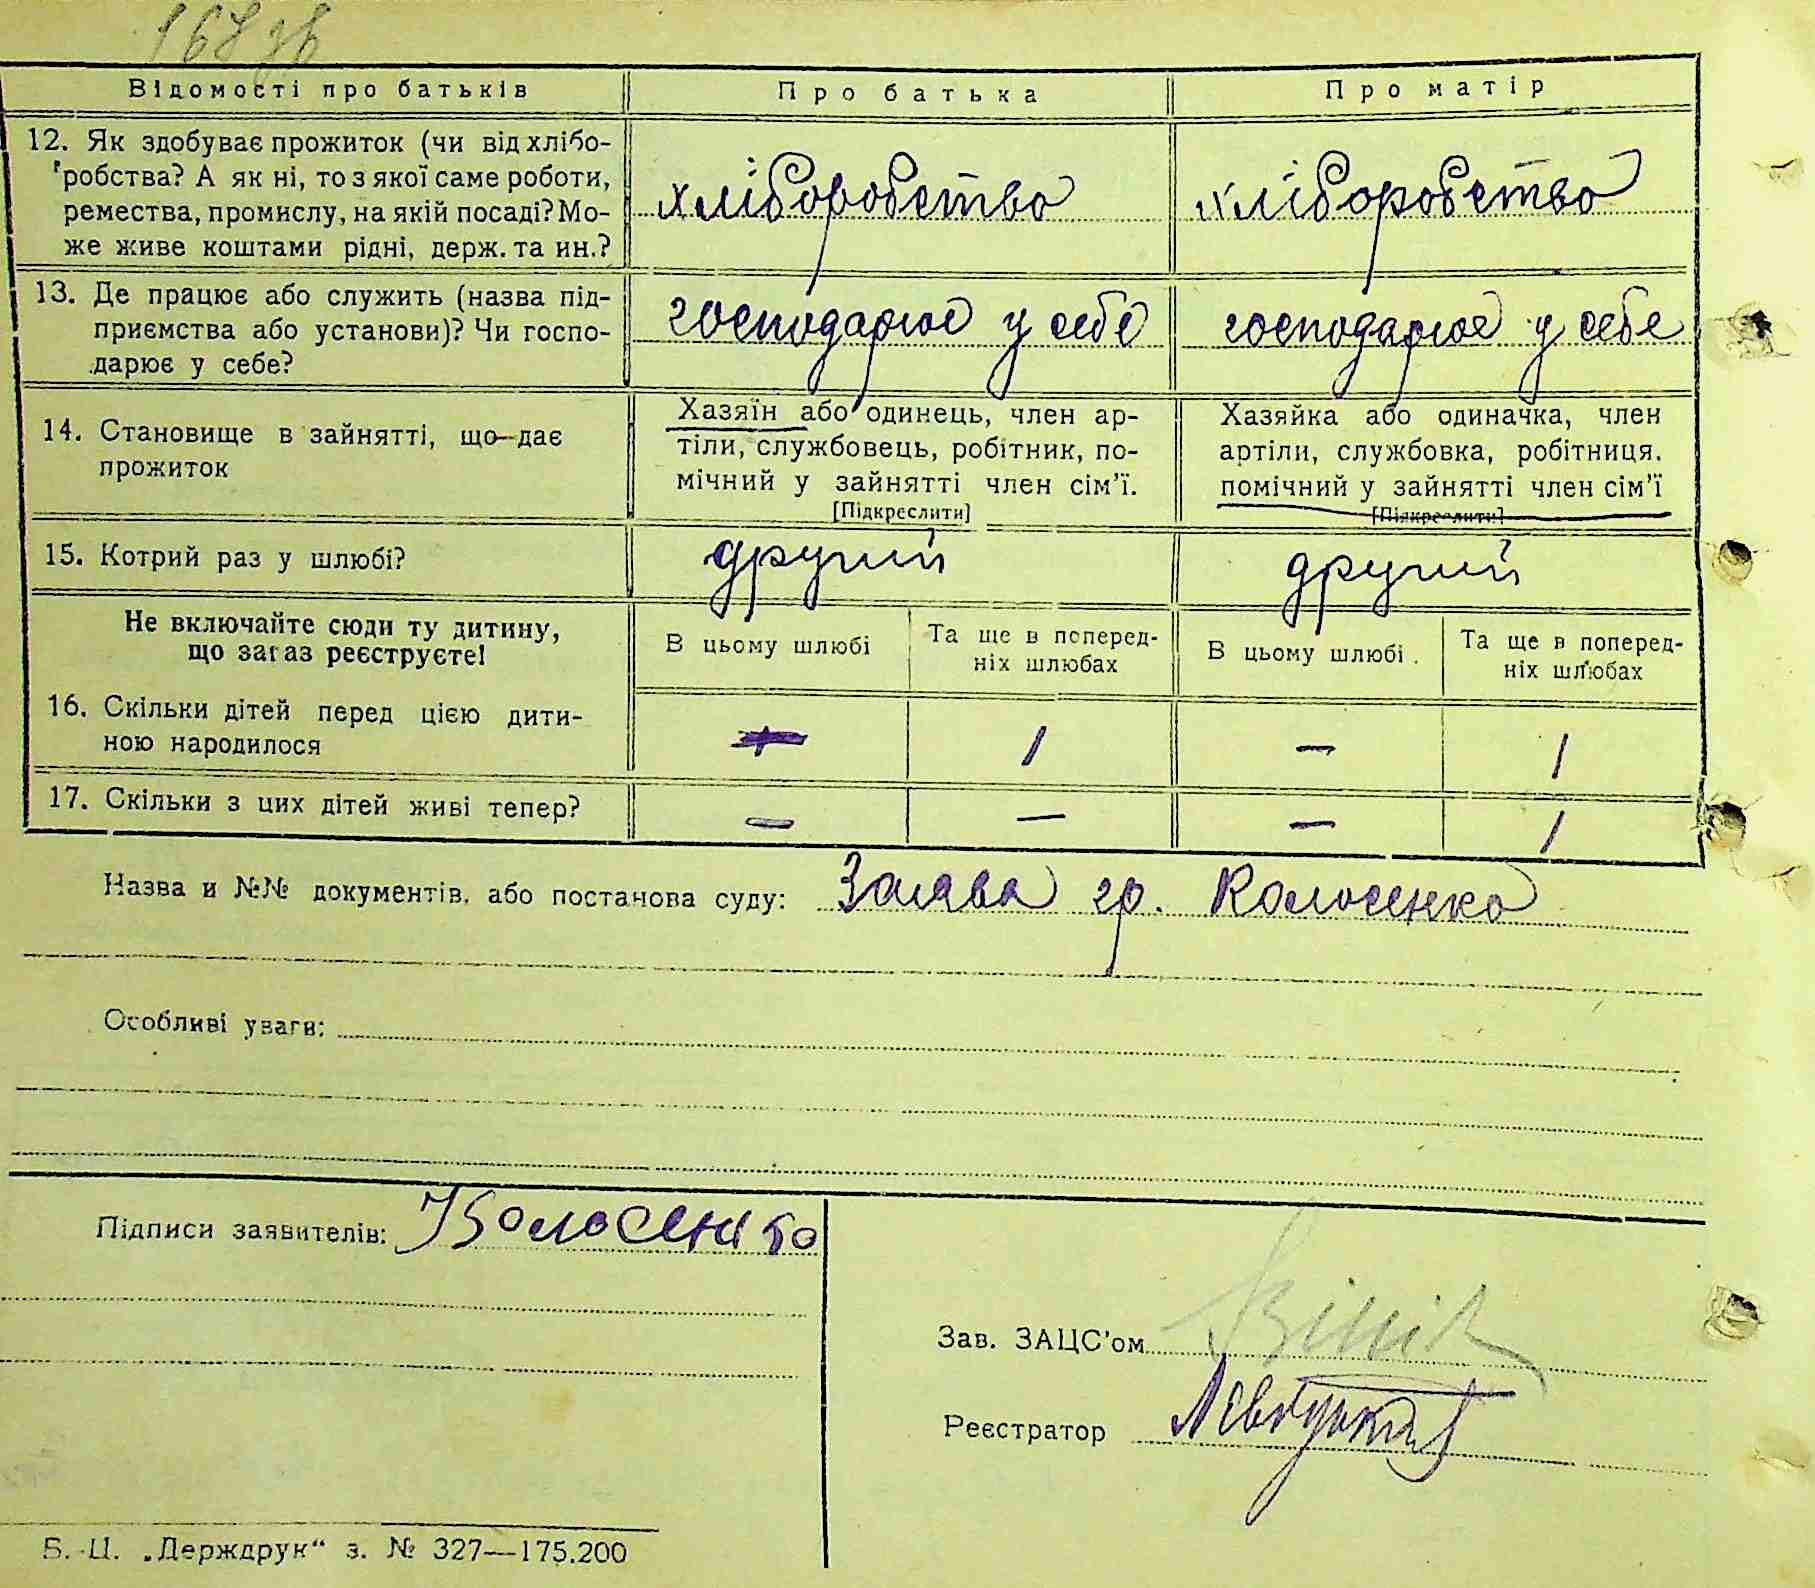 168 зв
Відомості про батьків
Про батька
Про матір
12. Як здобуває прожиток (чи від хлібо-
робства? А як ні, то з якої саме роботи,
ремества, промислу, на якій посаді? Мо-
же живе коштами рідні, держ. та ин.?
хліборобство
хліборобство
13. Де працює або служить (назва під-
приємства або установи)? Чи госпо-
дарює у себе?
господарює у себе
господарює у себе
14. Становище в зайнятті, що дає
прожиток
Хазяїн або одинець, член ар-
тіли, службовець, робітник, по-
мічний у зайнятті член сім'ї.
[Підкреслити]
Хазяйка або одиначка, член
артіли, службовка, робітниця.
помічний у зайнятті член сім'ї
[Підкреслити]
15. Котрий раз у шлюбі?
другий
другий
Не включайте сюди ту дитину,
що зараз реєструєте!
В цьому шлюбі
Та ще в поперед-
ніх шлюбах
В цьому шлюбі.
Та ще в поперед-
ніх шлюбах
16. Скільки дітей перед цією дити-
ною народилося
1
–
1
17. Скільки з цих дітей живі тепер?
–
–
–
1
Назва и №№ документів, або постанова суду: Заява гр. Колосенка
Особливі уваги:
Підписи заявителів: Колосенко
Зав. ЗАЦС'ом
Реєстратор
Б.-Ц. „Держдрук“ з. № 327—175.200